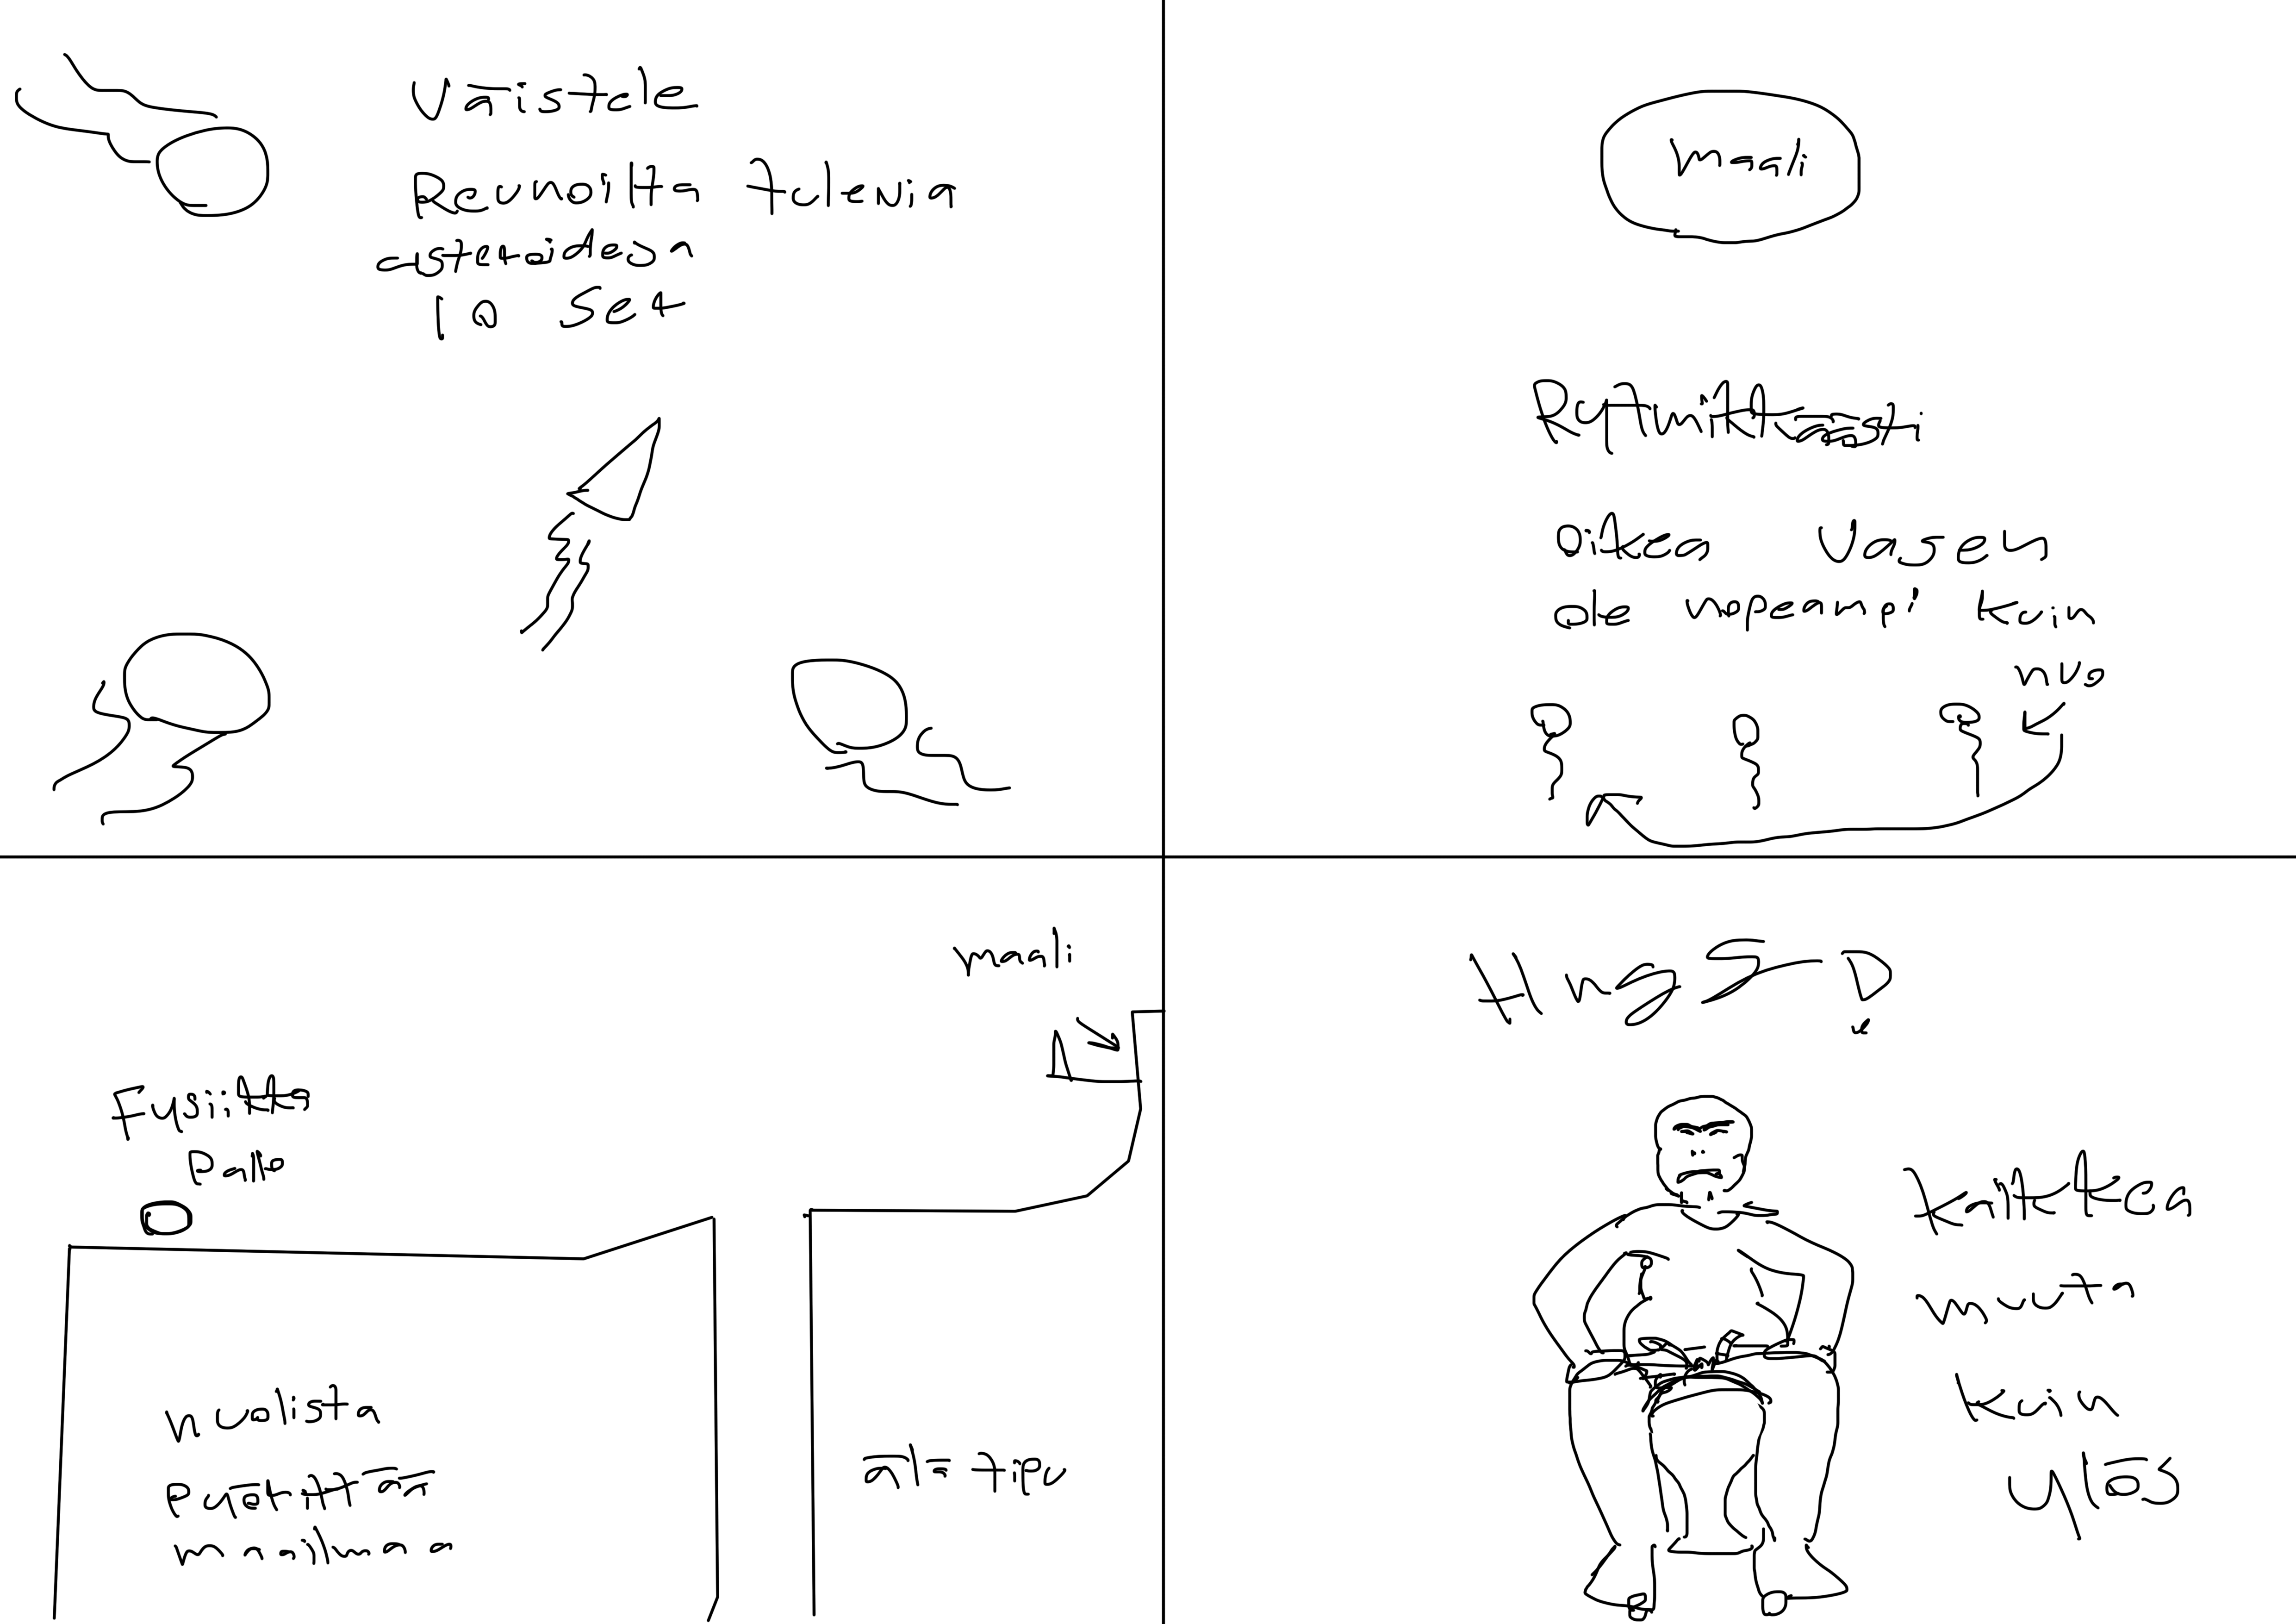 Väistele
Reunoilta tulevia
asteroideja
10 sek
maali
Rytmikkäästi
oikea vasen
ole nopeampi kuin
muo
maali
Fysiikka
Pallo
nuolista
pyöritä
maailmaa
älä tipu
katkea
muuta
kuin
ylös